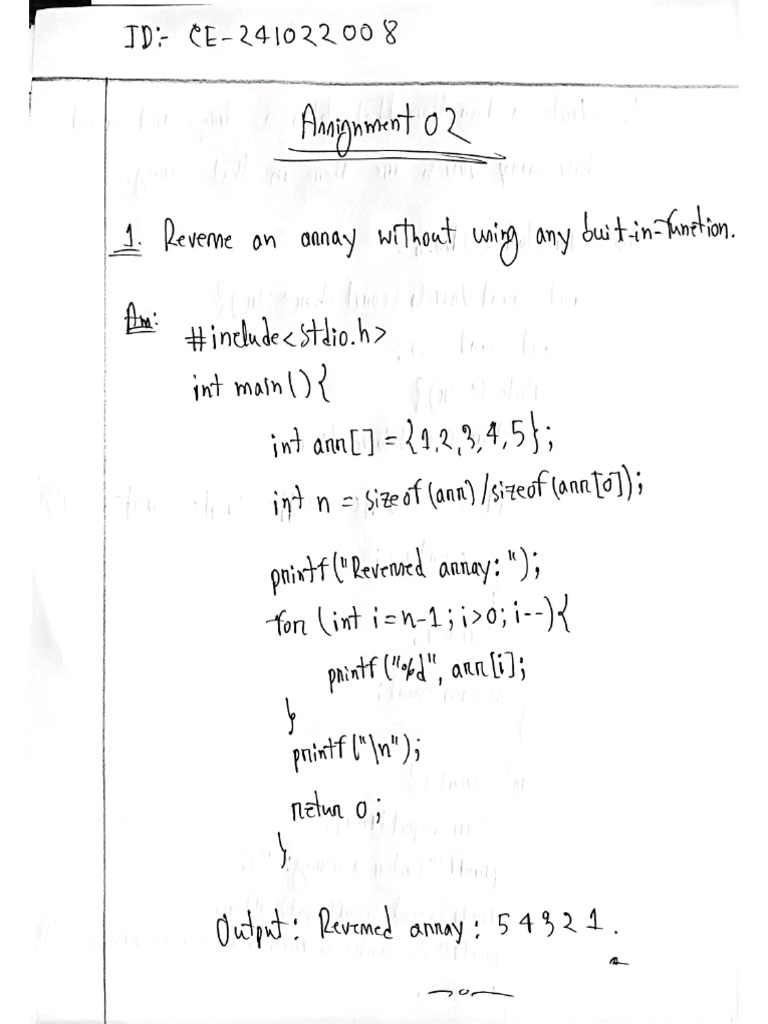 ID:- CE-241022008
Assignment 02
1. Reverse an array without using any buit-in-function.
Ans:
#include<stdio.h>
int main(){
int arr[] = {1,2,3,4,5};
int n = sizeof(arr)/sizeof(arr[0]);
printf("Reversed array: ");
for (int i=n-1; i>0; i--){
printf("%d", arr[i];
}
printf("\n");
return 0;
}
Output: Reversed array: 5 4 3 2 1.